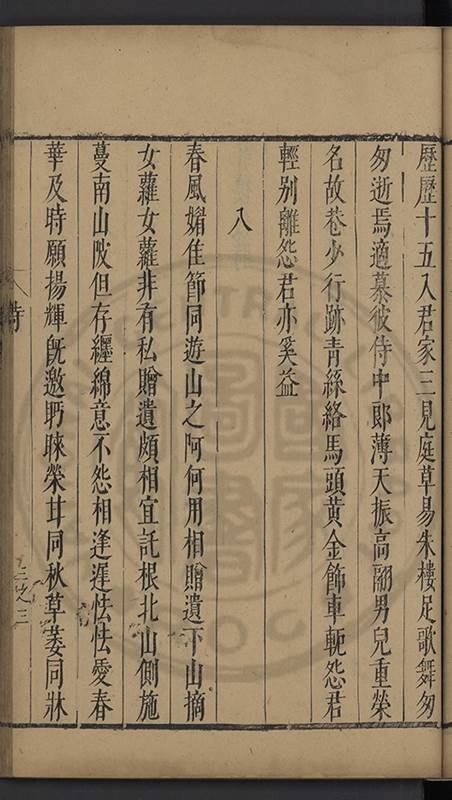 歷歷十五入君家三見庭草易朱樓足歌舞匆
匆逝焉適慕彼侍中郎薄天振高翮男兒重榮
名故巷少行跡青絲絡馬頭黃金飾車軛怨君
輕別離怨君亦奚益
八
春風媚佳節同遊山之阿何用相贈遺下山摘
女蘿女蘿非有私贈遺頗相宜託根北山側施
蔓南山陂但存纏綿意不怨相逢遲怯怯愛春
華及時願揚輝旣邀眄睞榮甘同秋草萎同牀
詩
三之三